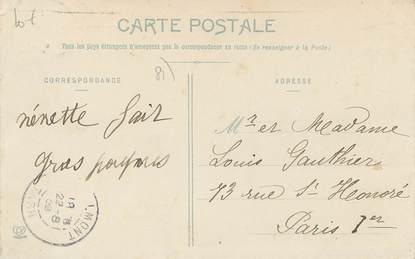 Lot
CARTE POSTALE
Tous les pays étrangers n'acceptent pas la correspondance au recto (Se renseigner à la Poste)
81
CORRESPONDANCE
ADRESSE
nénette fait
gros
Mr et Madame
Louis Gauthier
73 rue St Honoré
Paris 1er